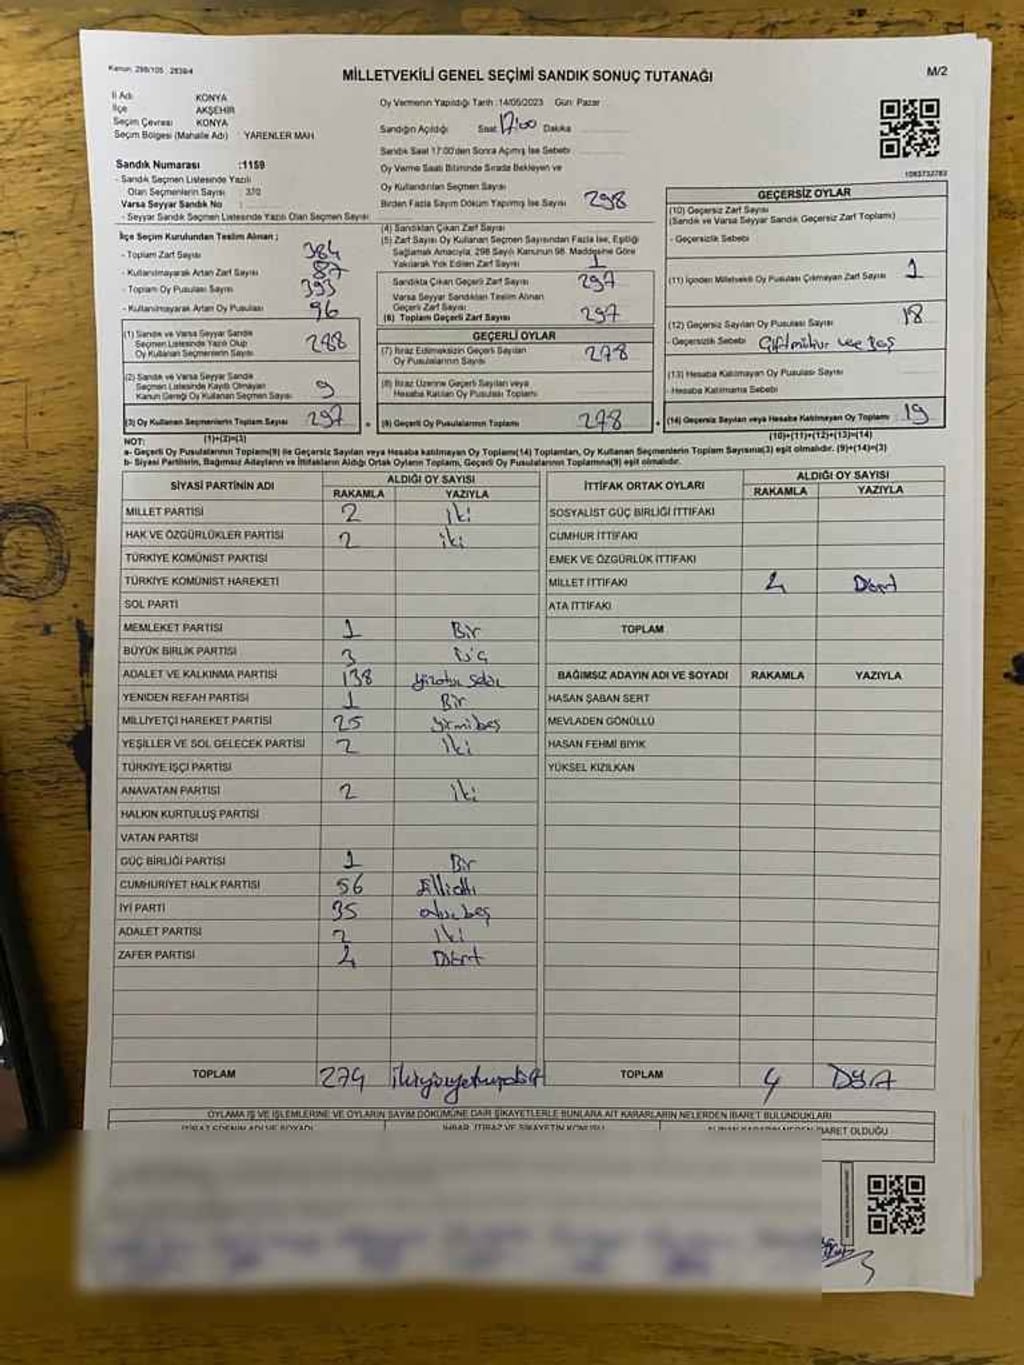 Kanun: 298/105 : 2839/4
MİLLETVEKİLİ GENEL SEÇİMİ SANDIK SONUÇ TUTANAĞI
M/2
İl Adı KONYA
İlçe AKŞEHİR
Seçim Çevresi KONYA
Seçim Bölgesi (Mahalle Adı) : YARENLER MAH.
Sandık Numarası :1159
- Sandık Seçmen Listesinde Yazılı
Olan Seçmenlerin Sayısı : 370
Varsa Seyyar Sandık No :
- Seyyar Sandık Seçmen Listesinde Yazılı Olan Seçmen Sayısı
Oy Vermenin Yapıldığı Tarih :14/05/2023 Gün: Pazar
Sandığın Açıldığı Saat 17:00 Dakika
Sandık Saat 17:00'den Sonra Açılmış İse Sebebi
Oy Verme Saati Bitiminde Sırada Bekleyen ve
Oy Kullandırılan Seçmen Sayısı
Birden Fazla Sayım Döküm Yapılmış İse Sayısı 298
1083732783
İlçe Seçim Kurulundan Teslim Alınan ;
- Toplam Zarf Sayısı 384
- Kullanılmayarak Artan Zarf Sayısı 87
- Toplam Oy Pusulası Sayısı 393
- Kullanılmayarak Artan Oy Pusulası 96
(1) Sandık ve Varsa Seyyar Sandık
Seçmen Listesinde Yazılı Olup
Oy Kullanan Seçmenlerin Sayısı
(2) Sandık ve Varsa Seyyar Sandık
Seçmen Listesinde Kaydı Olmayan
Kanun Gereği Oy Kullanan Seçmen Sayısı 9
(3) Oy Kullanan Seçmenlerin Toplam Sayısı 297
(1)+(2)=(3)
(4) Sandıktan Çıkan Zarf Sayısı
(5) Zarf Sayısı Oy Kullanan Seçmen Sayısından Fazla İse, Eşitliği
Sağlamak Amacıyla, 298 Sayılı Kanunun 98. Maddesine Göre
Yakılarak Yok Edilen Zarf Sayısı 1
Sandıkta Çıkan Geçerli Zarf Sayısı 297
Varsa Seyyar Sandıktan Teslim Alınan
Geçerli Zarf Sayısı
(6) Toplam Geçerli Zarf Sayısı 297
GEÇERLİ OYLAR
(7) İtiraz Edilmeksizin Geçerli Sayılan
Oy Pusulalarının Sayısı 278
(8) İtiraz Üzerine Geçerli Sayılan veya
Hesaba Katılan Oy Pusulası Toplamı
(9) Geçerli Oy Pusulalarının Toplamı 278
GEÇERSİZ OYLAR
(10) Geçersiz Zarf Sayısı
(Sandık ve Varsa Seyyar Sandık Geçersiz Zarf Toplamı)
- Geçersizlik Sebebi
(11) İçinden Milletvekili Oy Pusulası Çıkmayan Zarf Sayısı 1
(12) Geçersiz Sayılan Oy Pusulası Sayısı 18
- Geçersizlik Sebebi Çift mühür ve boş
(13) Hesaba Katılmayan Oy Pusulası Sayısı
- Hesaba Katılmama Sebebi
(14) Geçersiz Sayılan veya Hesaba Katılmayan Oy Toplamı 19
(10)+(11)+(12)+(13)=(14)
NOT:
a- Geçerli Oy Pusulalarının Toplamı(9) ile Geçersiz Sayılan veya Hesaba katılmayan Oy Toplamı(14) Toplamları, Oy Kullanan Seçmenlerin Toplam Sayısına(3) eşit olmalıdır. (9)+(14)=(3)
b- Siyasi Partilerin, Bağımsız Adayların ve İttifakların Aldığı Ortak Oyların Toplamı, Geçerli Oy Pusulalarının Toplamına(9) eşit olmalıdır.
SİYASİ PARTİNİN ADI ALDIĞI OY SAYISI
RAKAMLA YAZIYLA
MİLLET PARTİSİ 2 iki
HAK VE ÖZGÜRLÜKLER PARTİSİ 2 iki
TÜRKİYE KOMÜNİST PARTİSİ
TÜRKİYE KOMÜNİST HAREKETİ
SOL PARTİ
MEMLEKET PARTİSİ 1 Bir
BÜYÜK BİRLİK PARTİSİ 3 üç
ADALET VE KALKINMA PARTİSİ 138
YENİDEN REFAH PARTİSİ 1 Bir
MİLLİYETÇİ HAREKET PARTİSİ 25 yirmibeş
YEŞİLLER VE SOL GELECEK PARTİSİ 2 iki
TÜRKİYE İŞÇİ PARTİSİ
ANAVATAN PARTİSİ 2 iki
HALKIN KURTULUŞ PARTİSİ
VATAN PARTİSİ
GÜÇ BİRLİĞİ PARTİSİ 1 Bir
CUMHURİYET HALK PARTİSİ 56 Ellialtı
İYİ PARTİ 35 otuzbeş
ADALET PARTİSİ 2 iki
ZAFER PARTİSİ 4 Dört
TOPLAM 274
İTTİFAK ORTAK OYLARI ALDIĞI OY SAYISI
RAKAMLA YAZIYLA
SOSYALİST GÜÇ BİRLİĞİ İTTİFAKI
CUMHUR İTTİFAKI
EMEK VE ÖZGÜRLÜK İTTİFAKI
MİLLET İTTİFAKI 4 Dört
ATA İTTİFAKI
TOPLAM
BAĞIMSIZ ADAYIN ADI VE SOYADI RAKAMLA YAZIYLA
HASAN ŞABAN SERT
MEVLADEN GÖNÜLLÜ
HASAN FEHMİ BIYIK
YÜKSEL KIZILKAN
TOPLAM 4
OYLAMA İŞ VE İŞLEMLERİNE VE OYLARIN SAYIM DÖKÜMÜNE DAİR ŞİKAYETLERLE BUNLARA AİT KARARLARIN NELERDEN İBARET BULUNDUKLARI
İTİRAZ EDENİN ADI VE SOYADI İHBAR, İTİRAZ VE ŞİKAYETİN KONUSU